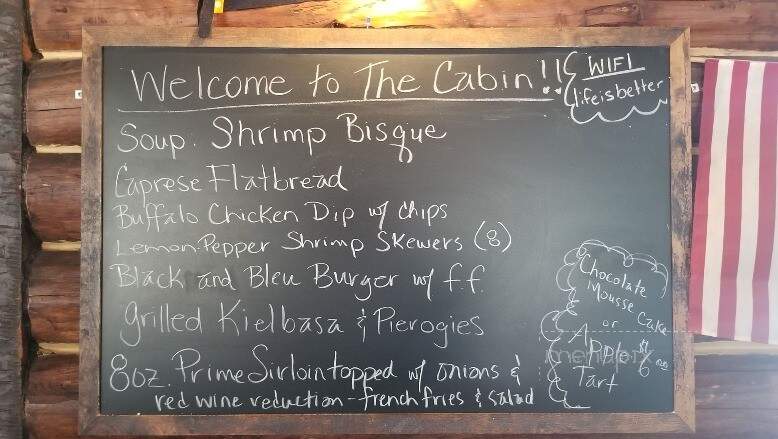 Welcome to The Cabin!!
WIFI
lifeisbetter
Soup. Shrimp Bisque
Caprese Flatbread
Buffalo Chicken Dip w/ chips
Lemon-Pepper Shrimp Skewers (8)
Black and Bleu Burger w/ f.f.
Grilled Kielbasa & Pierogies
8oz. Prime Sirloin topped w/ onions &
red wine reduction - french fries & salad
Chocolate
Mousse Cake
or
Apple $6
Tart